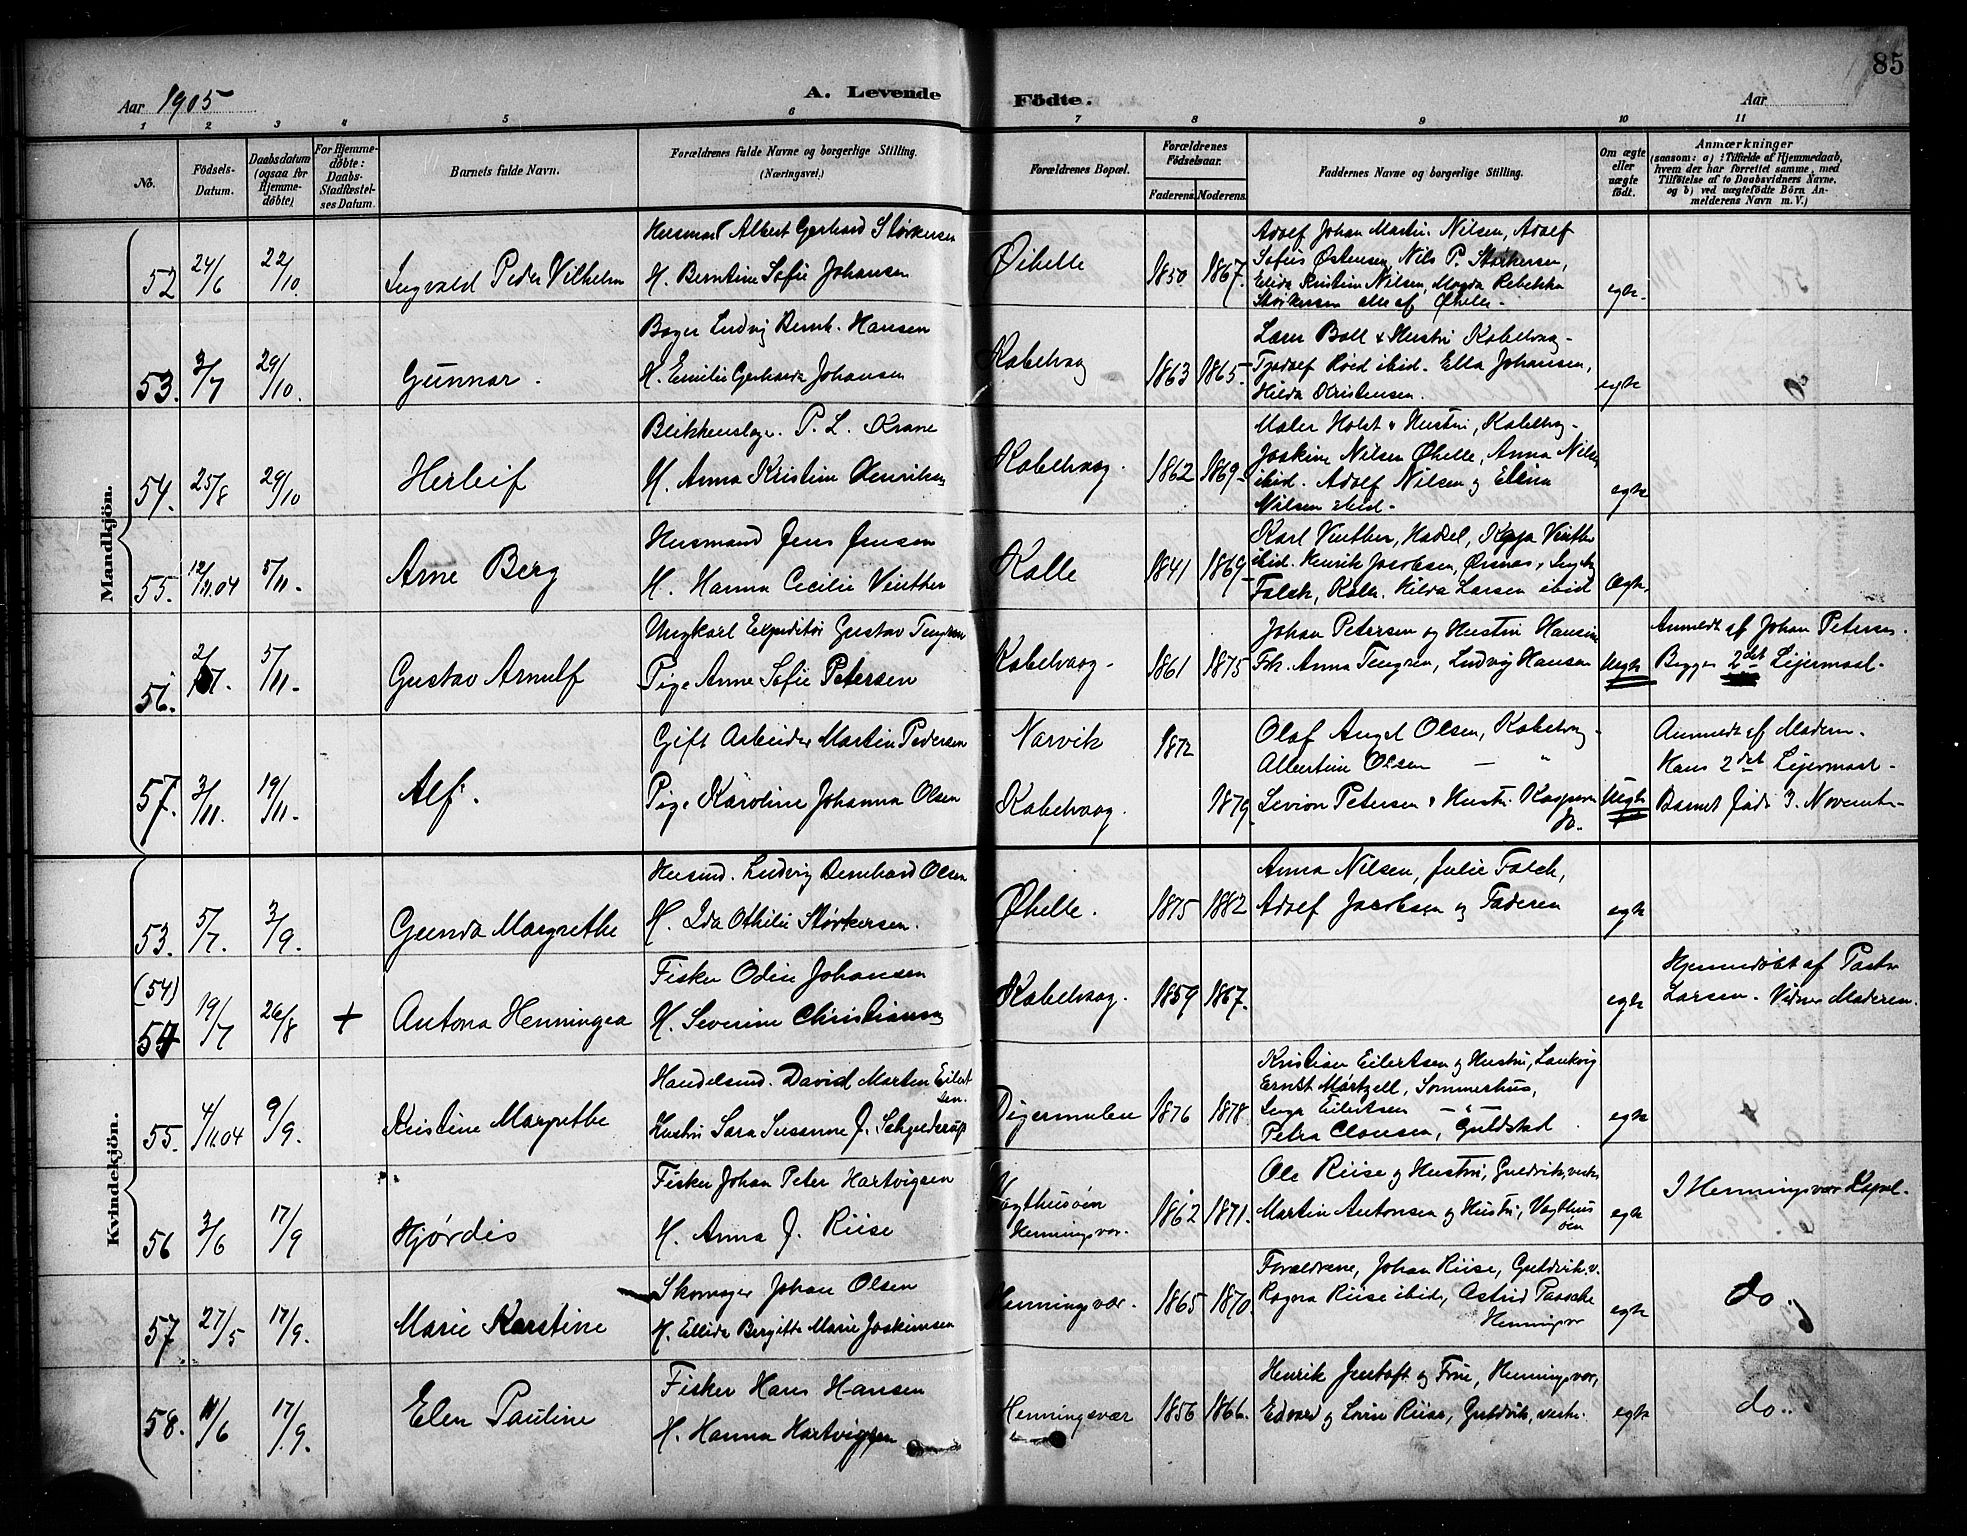 85
Aar 1905
A. Levende
Födte.
Aar
1 2 3 4 5 6 7 8 9 10 11
No.
Födsels-Datum.
Daabsdatum (ogsaa for Hjemmedöbte)
For Hjemmedöbte: Daabs-Stadfæstelses Datum.
Barnets fulde Navn.
Forældrenes fulde Navne og borgerlige Stilling. (Næringsvei.)
Forældrenes Bopæl.
Forældrenes Födselsaar.
Faderens. Moderens.
Faddernes Navne og borgerlige Stilling.
Om ægte eller uægte födt.
Anmærkninger
(saasom: a) i Tilfælde af Hjemmedaab, hvem der har forrettet samme, med Tilföielse af to Daabsvidners Navne, og b) ved uægtefödte Börn Anmelderens Navn m. V.)
Mandkjön.
Husmand Albert Gerhard Størkersen
52 24/6 22/10 Ingvald Peder Vilhelm
H. Berntine Sofie Johansen
Øihelle 1850 1867.
Adolf Johan Martin Nilsen, Adolf
Sofus Østensen, Nils P. Størkersen,
Elida Kristine Nilsen, Magda Rebekka
Størkersen alle af Øhelle-
egte.
Bager Ludvig Bernh. Hansen
53. 3/7 29/10. Gunnar.
H. Emilie Gerharda Johansen
Kabelvaag 1863 1865.
Boll & Hustru Kabelvaag-
Røed ibid. Ella Johansen,
Hilda Kristensen.
egte
Blikkenslager. P. L. Krane
54. 25/8 29/10 Herleif
H. Anna Kristine Henriksen
Kabelvaag. 1862 1869-
Maler Holst & Hustru, Kabelvaag-
Joakim Nilsen Øhelle, Anna Nilsen
ibid. Adolf Nilsen og
Nilsen ibid-
egte
Husmand Jens Jensen
55. 12/11.04 5/11. Arne Berg
H. Hanna Cecilie Vinther
Kalle 1841 1869-
Karl Vinther, Hadsel, Kaja Vinther
ibid. Henrik Jacobsen, Ørsnes,
Falch, Kalle. Hilda Larsen ibid
Ægte.
Ungkarl Expeditør Gustav Tengsen
56. 5/11. Gustav Arnulf
Pige Anne Sofie Petersen
Kabelvaag- 1861 1875
Johan Petersen og Hustru Hansine
Frk. Anna Tengsen, Ludvig Hansen
Uegte
Anmeldt af Johan Petersen.
Begges 2det Lejermaal-
Gift Arbeider Martin Pedersen
57. 3/11. 19/11. Alf.
Pige Karoline Johanna Olsen
Narvik 1872
Kabelvaag. 1879.
Olaf Angel Olsen, Kabelvaag-
Albertine Olsen — "
Levion Petersen & Hustru
do.
Uegte
Anmeldt af Moderen.
Hans 2det Lejermaal-
Barnet født 3. November-
Kvindekjön.
Husmd. Ludvig Bernhard Olsen
53. 5/7. 3/9. Gunda Margrethe
H. Ida Othilie Størkersen.
Øhelle. 1875 1882
Anna Nilsen, Julie Falch,
Adolf Jacobsen og Faderen
egte
(54)
54 19/7 26/8 + Antona Henningea
Fisker Odin Johansen
H. Severine Christiansen
Kabelvaag. 1859 1867.
egte
Hjemmedøbt af Pastor
Larsen. Vidner Moderen.
Handelsmd. David Morten Eilertsen.
55. 4/11.04 9/9. Kristine Margrethe
Hustru Sara Susanne J. Schjelderup
Digermulen 1876 1878.
Kristian Eilertsen og Hustru, Laukvig
Ernst Mørtzell, Sommerhus,
Inga Eilertsen —"—
Petra Clausen, Guldstad.
egte
Fisker Johan Peter Hartvigsen
56 3/6 17/9 Hjørdis
H. Anna J. Riise
Vagthusøen
Henningsvær. 1862 1871.
Ole Riise og Hustru, Guldvik, vestre
Martin Antonsen og Hustru, Vagthusøen
egte
I Henningsvær Kapel.
Skomager Johan Olsen
57. 27/5 17/9. Marie Karstine
H. Ellida Bergitte Marie Joakimsen
Henningsvær. 1865 1870.
Forældrene, Johan Riise, Guldvik. v.
Ragna Riise ibid, Astrid Paasche
Henningsvær
egte
do.
Fisker Hans Hansen
58. 11/6 17/9. Elen Pauline
H. Hanna Hartvigsen
Henningsvær 1856 1866.
Henrik Jentoft og Frue, Henningsvær,
Edvard og Lovise Riise, Guldvik, vestre.
egte
do.